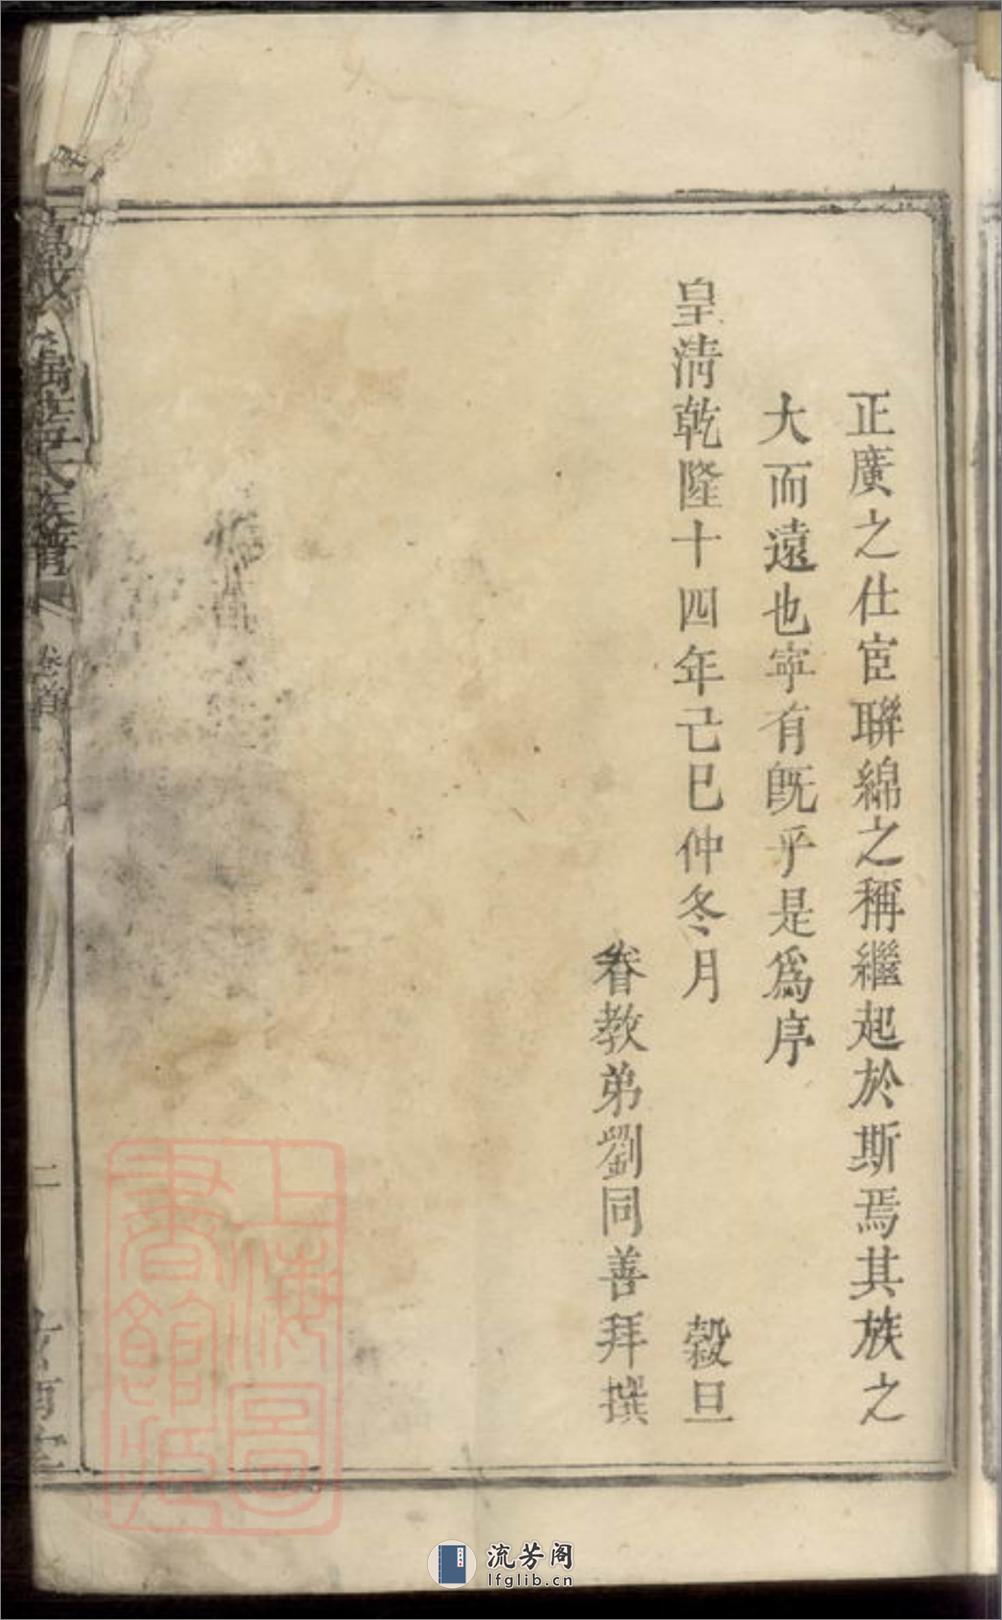 正廣之仕宦聯綿之稱繼起於斯焉其族之
大而遠也寧有旣乎是爲序
皇淸乾隆十四年己巳仲冬月 穀旦
眷教弟劉同善拜撰
氏族譜
卷首
二
上海圖書館藏
流芳阁
lfglib.cn